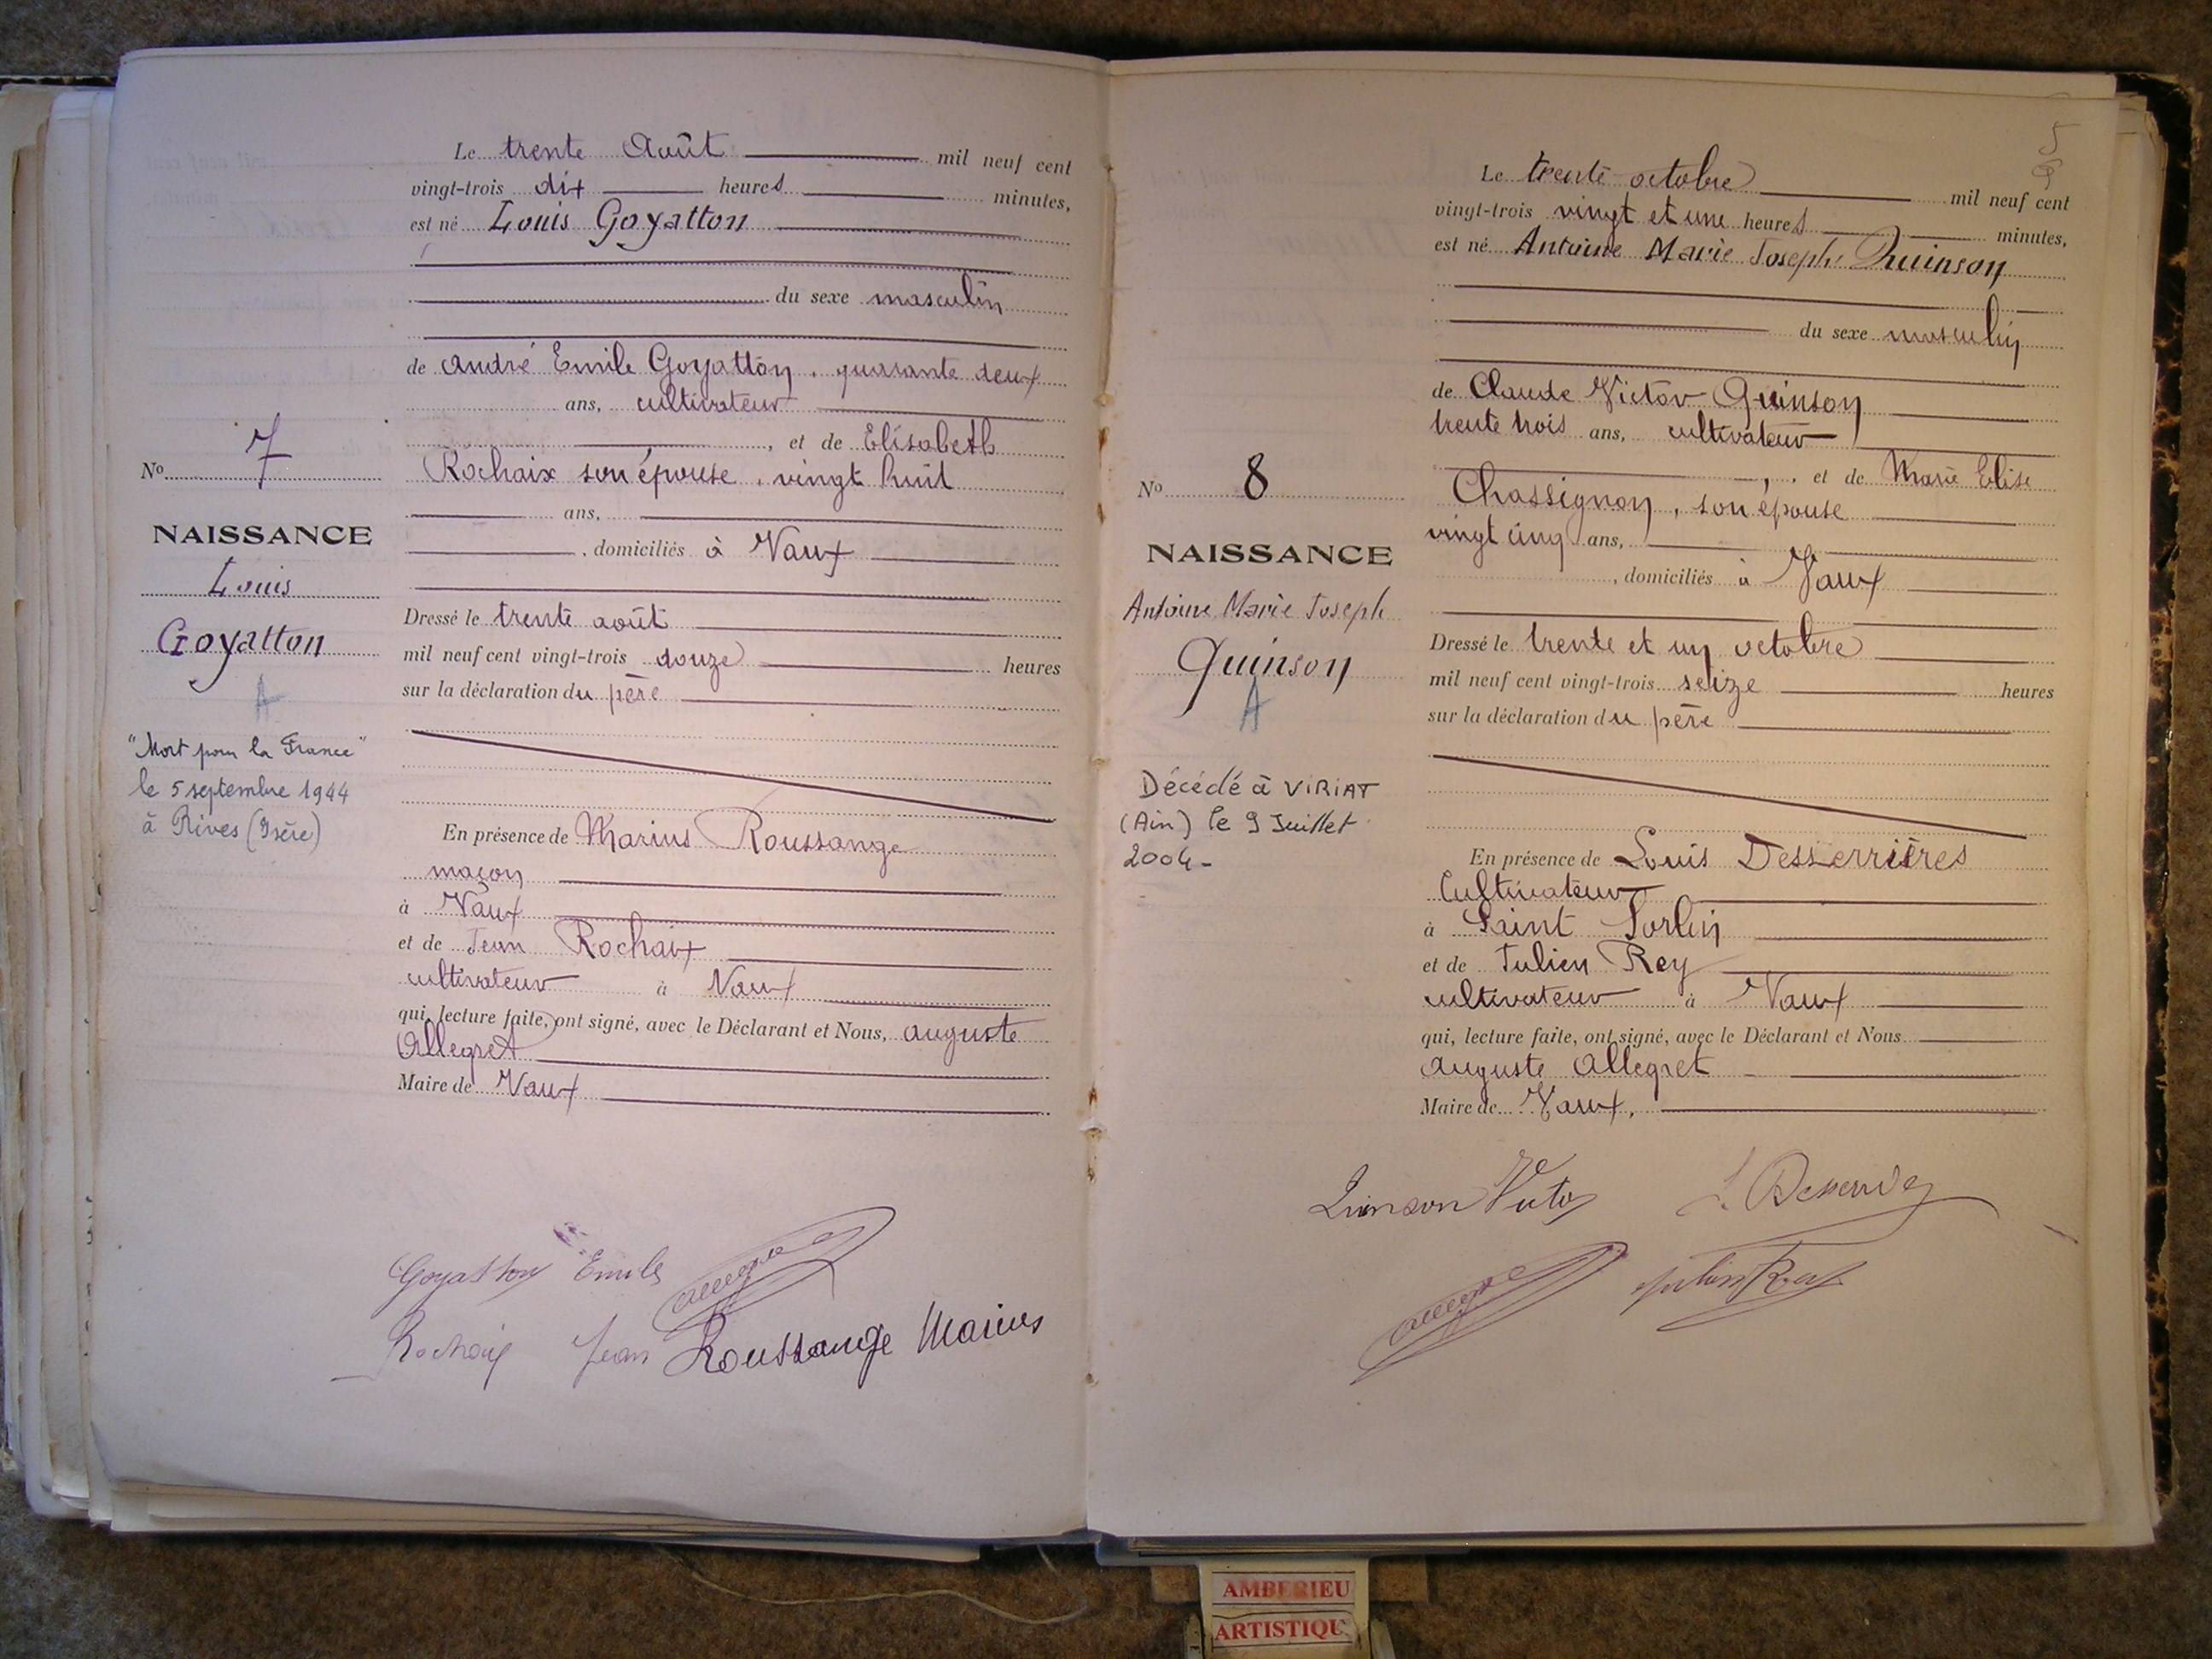 Le trente Août mil neuf cent
vingt-trois dix heures minutes,
est né Louis Goyatton
du sexe masculin
de André Emile Goyatton, quarante deux
ans, cultivateur
, et de Elisabeth
Rochaix son épouse, vingt huit
ans,
, domiciliés à Vaux
Dressé le trente août
mil neuf cent vingt-trois douze heures
sur la déclaration du père
En présence de Marius Roussange
maçon
à Vaux
et de Jean Rochaix
cultivateur à Vaux
qui, lecture faite, ont signé, avec le Déclarant et Nous, auguste
Allegret
Maire de Vaux
Goyatton Emile
Rochaix Jean Roussange Marius
No 7
NAISSANCE
Louis
Goyatton
A
"Mort pour la France"
le 5 septembre 1944
à Rives (Isère)
5
Le trente octobre mil neuf cent
vingt-trois vingt et une heures minutes,
est né Antoine Marie Joseph Quinson
du sexe masculin
de Claude Victor Quinson
trente trois ans, cultivateur
, et de Marie Elise
Chassignon, son épouse
vingt cinq ans,
, domiciliés à Vaux
Dressé le trente et un octobre
mil neuf cent vingt-trois seize heures
sur la déclaration du père
En présence de Louis Desserrières
Cultivateur
à Saint Sorlin
et de Julien Rey
cultivateur à Vaux
qui, lecture faite, ont signé, avec le Déclarant et Nous
auguste Allegret
Maire de Vaux,
Quinson Victor
Julien Rey
No 8
NAISSANCE
Antoine Marie Joseph
Quinson
A
Décédé à VIRIAT
(Ain) le 9 Juillet
2004-
AMBERIEU
ARTISTIQU